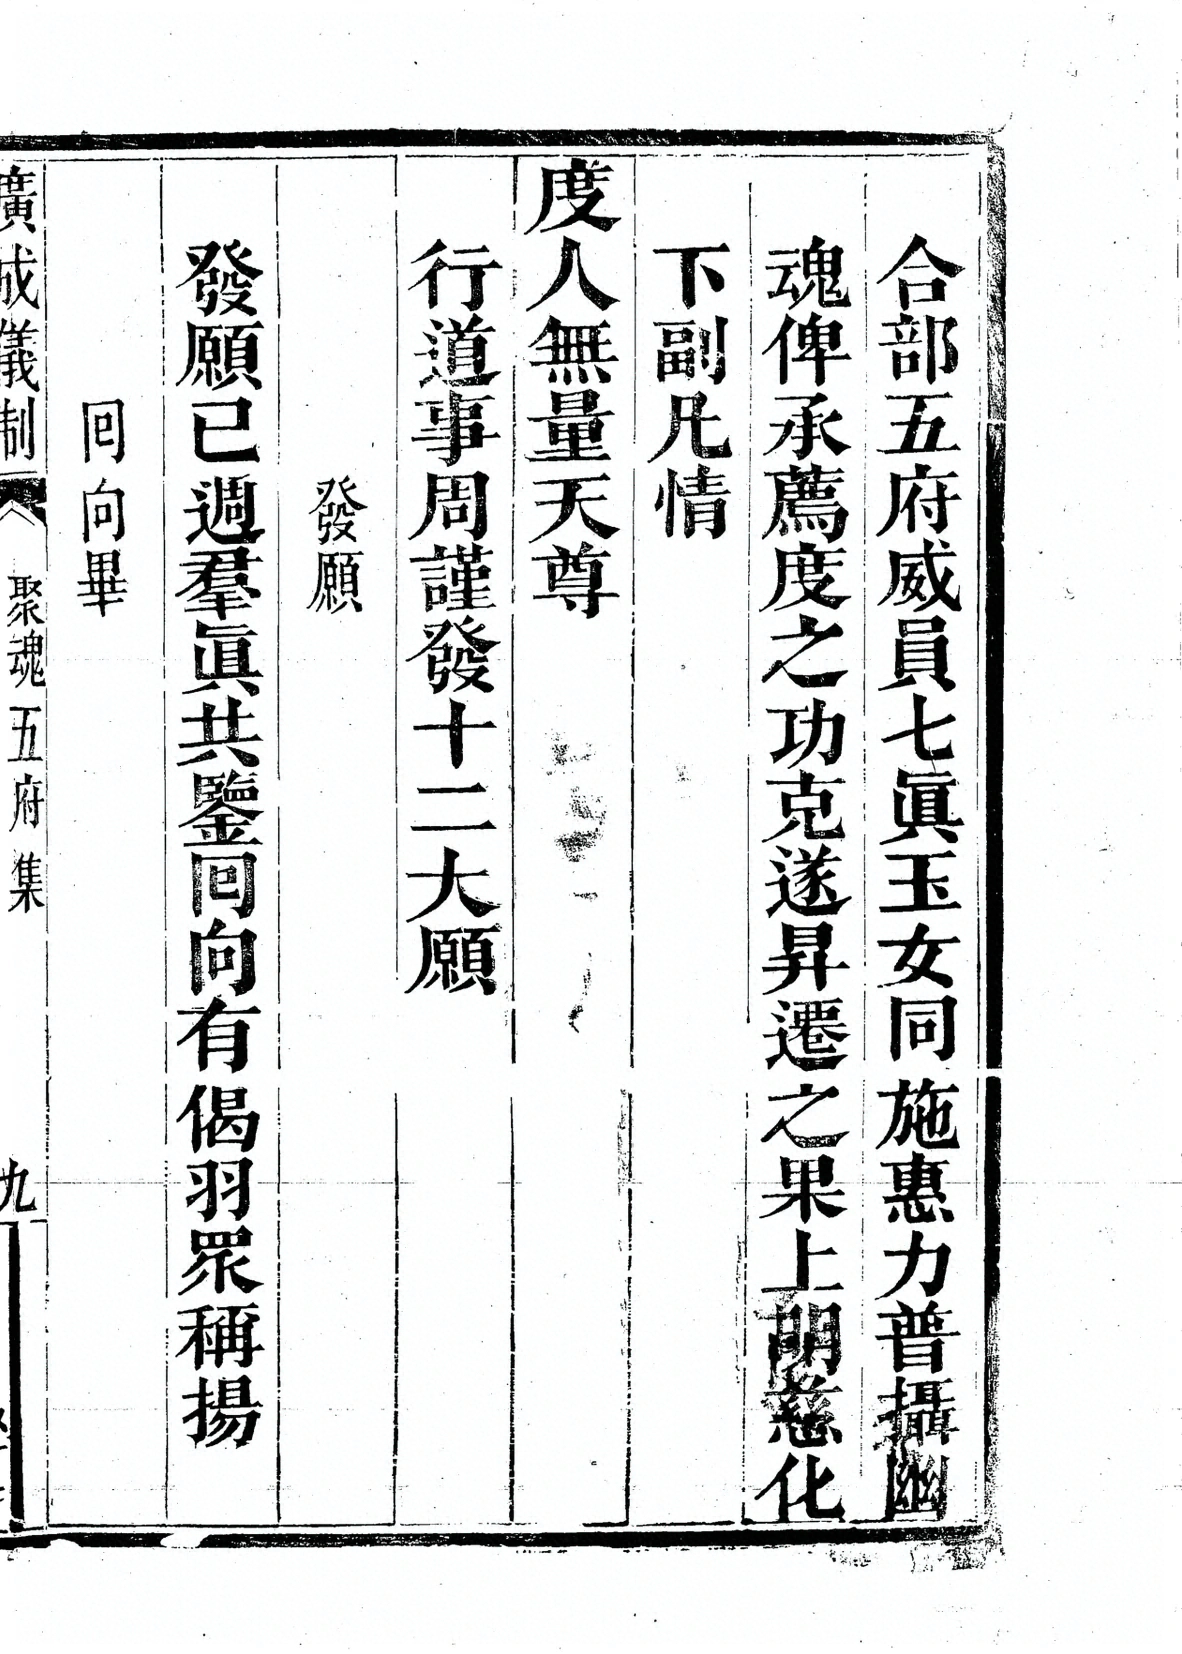 合部五府威員七眞玉女同施惠力普攝幽
魂俾承薦度之功克遂昇遷之果上朙慈化
下副凡情
度人無量天尊
行道事周謹發十二大願
發願
發願已週羣眞共鑒囘向有偈羽眾稱揚
囘向畢
廣成儀制
聚魂五府集
九